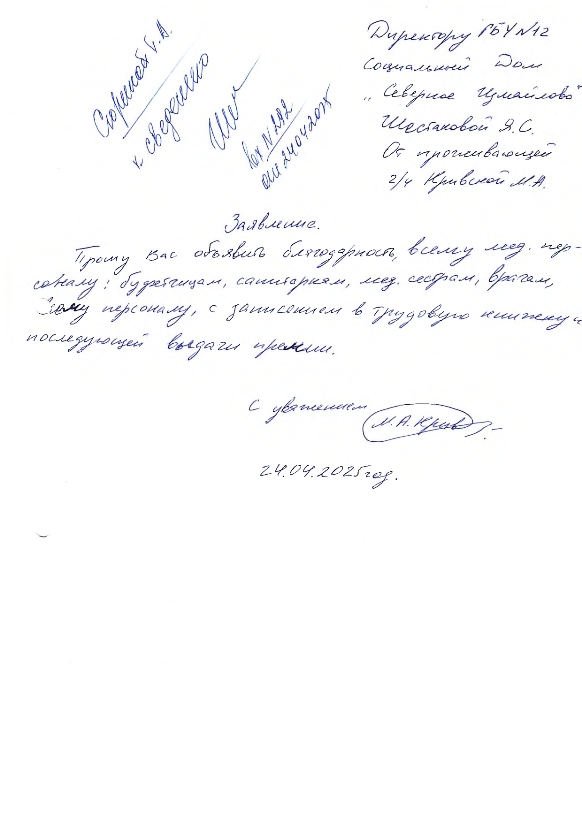 к сведению
вх N 292
от 24.04.2025
Директору ГБУ N12
Социальный Дом
„Северное Измайлово"
Шестаковой Я.С.
От проживающей
г/ч Кривской М.А.
Заявление.
Прошу Вас объявить благодарность, всему мед. пер-
соналу: буфетчицам, санитаркам, мед. сестрам, врачам,
персоналу, с занесением в трудовую книжку и
последующей выдачи премии.
С уважением
М.А. Крив
24.04.2025 год.